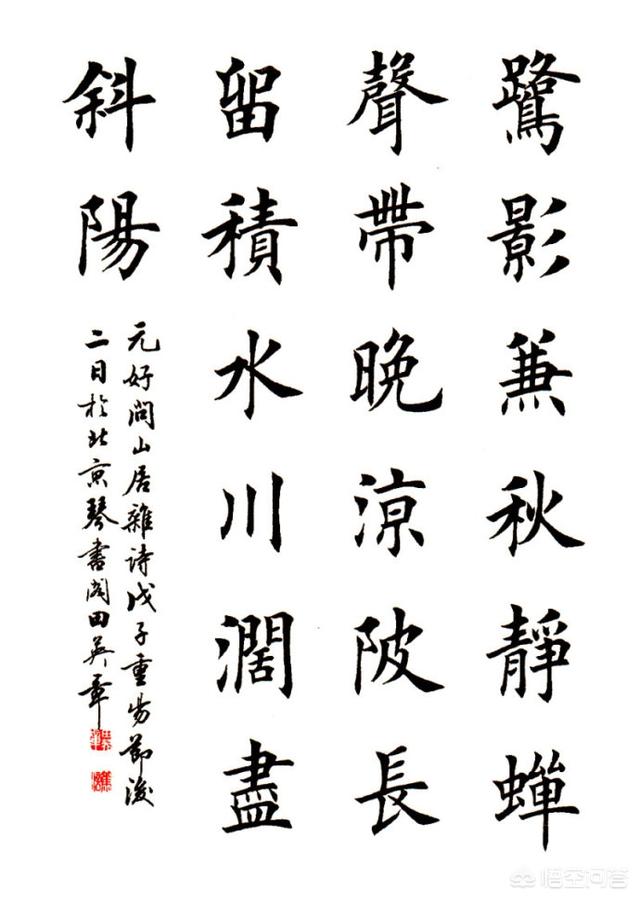 鷺影兼秋靜蟬
聲帶晚涼陂長
留積水川濶盡
斜陽
元好問山居雜詩戊子重陽節後
二日於北京琴書閣田英章
悟空问答